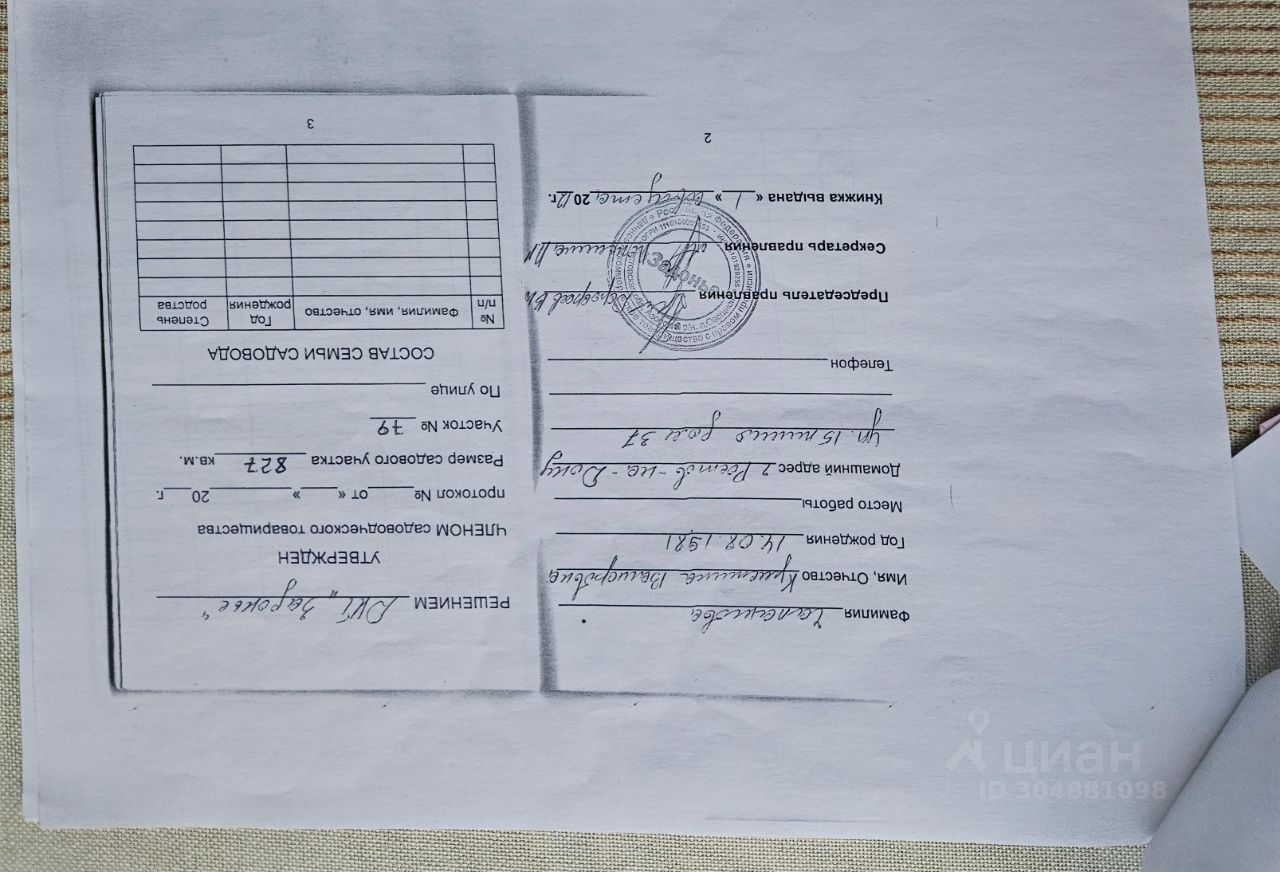 Фамилия
Имя, Отчество Кристина Валерьевна
Год рождения 14.08.1981
Место работы
Домашний адрес г Ростов-на-Дону
ул. 15 линия дом 37
Телефон
Председатель правления
Секретарь правления
Книжка выдана « 1 » августа 2012г.
2
РЕШЕНИЕМ ДНТ "Задонье"
УТВЕРЖДЕН
ЧЛЕНОМ САДОВОДЧЕСКОГО ТОВАРИЩЕСТВА
протокол № от « » 20 г.
Размер садового участка 827 кв.м.
Участок № 79
По улице
СОСТАВ СЕМЬИ САДОВОДА
№ п/п Фамилия, имя, отчество Год рождения Степень родства
3
Задонье
циан
ID 304881098